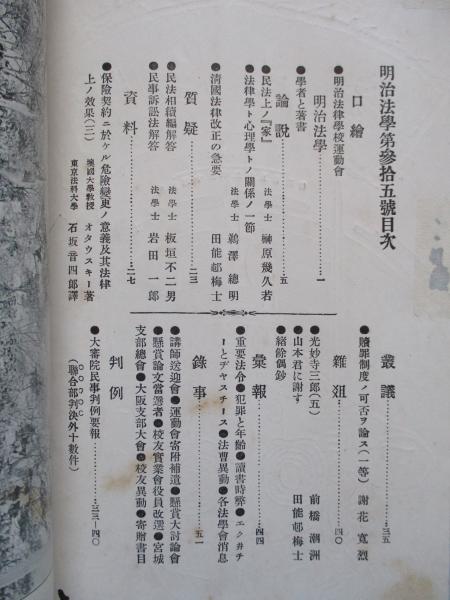 明治法學第參拾五號目次
口繪
●明治法律學校運動會
明治法學
●學者と著書……一
論說……五
●民法上ノ『家』 法學士 榊原幾久若
●法律學ト心理學トノ關係ノ一節 法學士 鵜澤總明
●清國法律改正の急要 田能邨梅士
質疑……二三
●民法相續編解答 法學士 板垣不二男
●民事訴訟法解答 法學士 岩田一郎
資料……二七
●保險契約ニ於ケル危險變更ノ意義及其法律
上ノ效果(三) 墺國大學教授 オタウスキー著
東京法科大學 石坂音四郎譯
叢議……三五
●贖罪制度ノ可否ヲ論ス(一等) 謝花寬烈
雜俎……四〇
●光妙寺三郎(五) 前橋潮洲
●山本君に謝す 田能邨梅士
●緒餘偶鈔
彙報……四四
●重要法令●犯罪と年齡●讀書時弊●エクイチ
ーとヂャスチース●法曹異動●各法學會消息
錄事……五一
●講師送迎會●運動會寄附補遺●懸賞大討論會
●懸賞論文當選者●校友實業會役員改選●宮城
支部總會●大阪支部大會●校友異動●寄贈書目
判例
●大審院民事判例要報……三三—四〇
(聯合部判決外十數件)